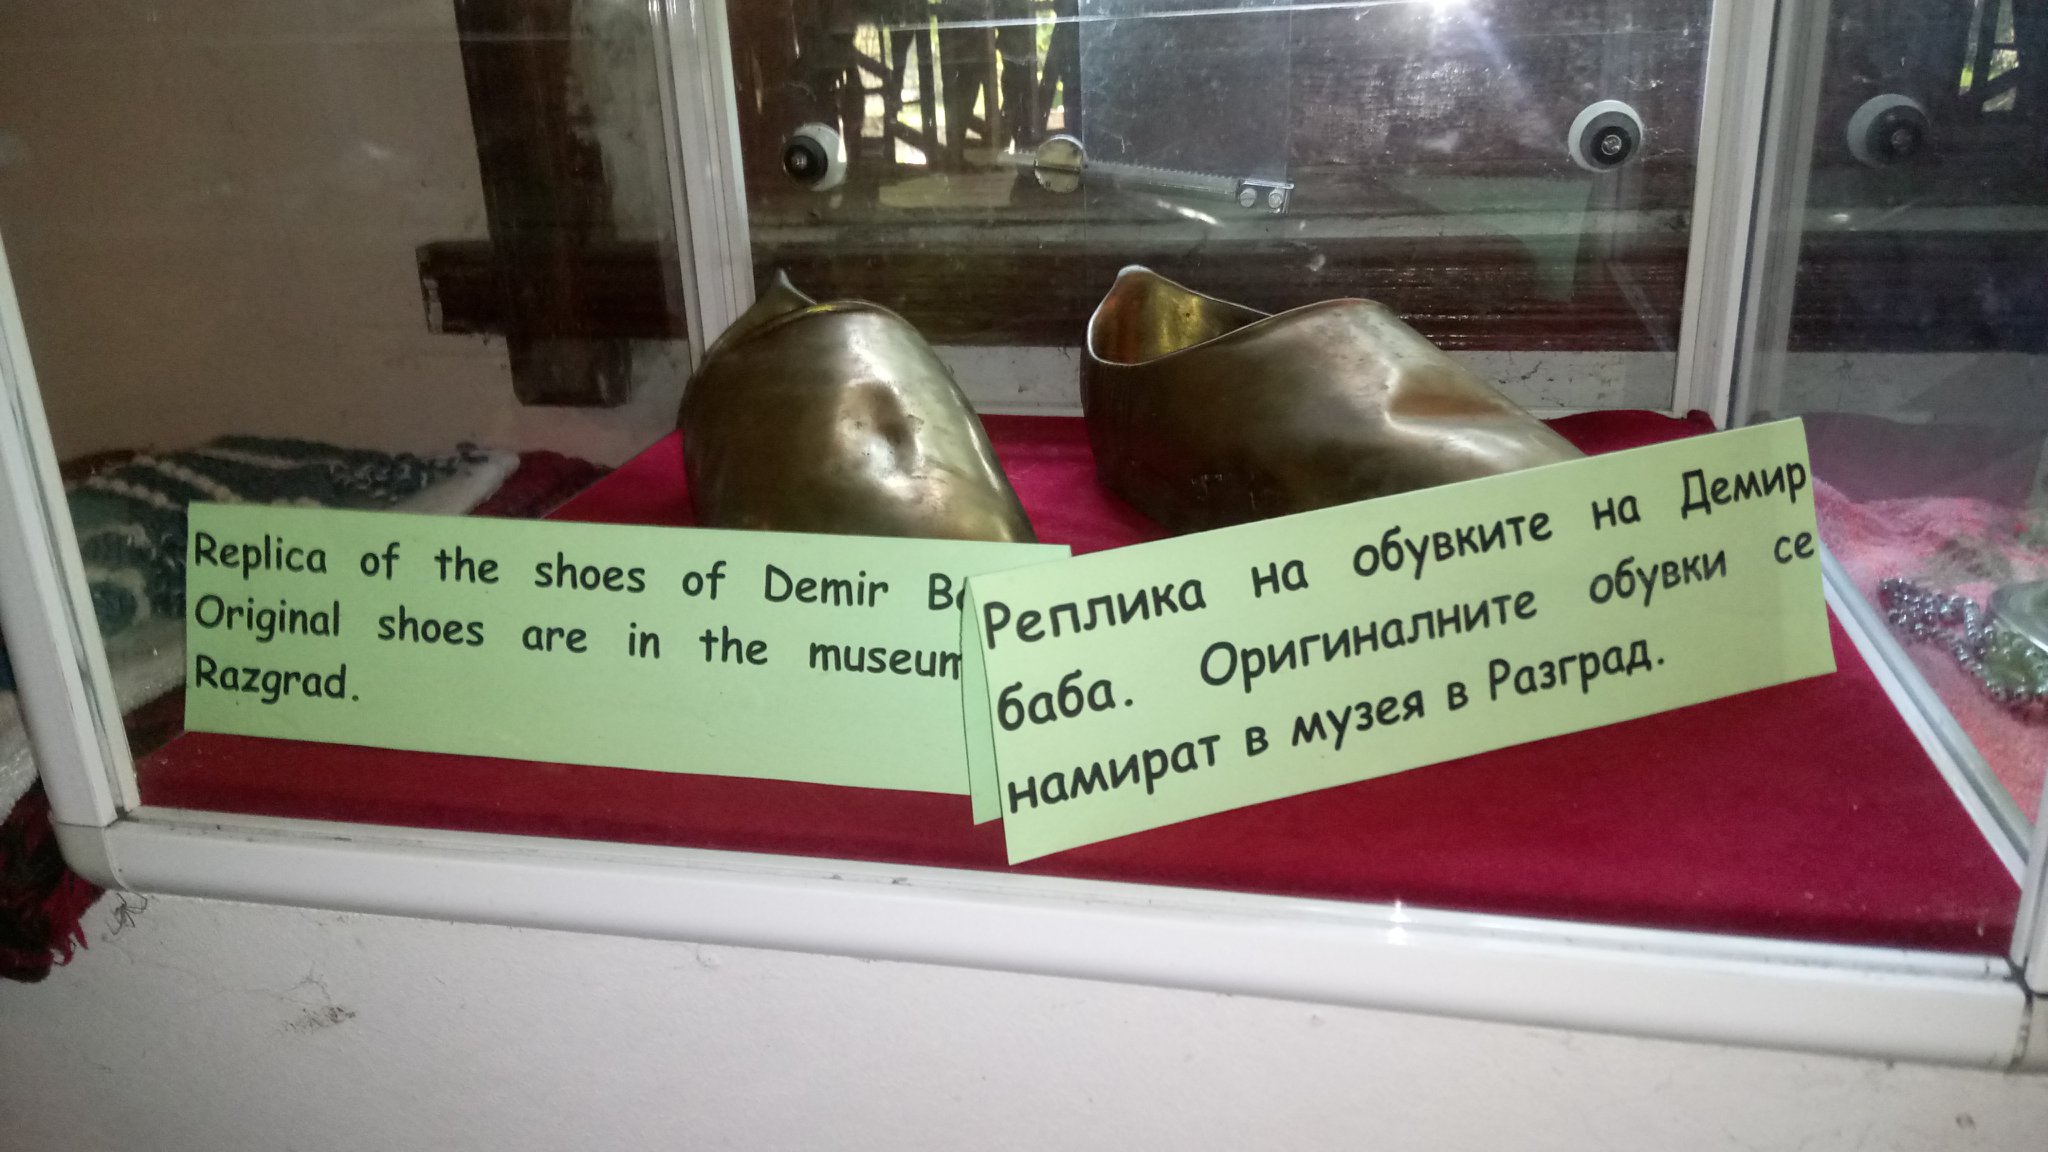 Replica of the shoes of Demir
Original shoes are in the museum
Razgrad.
Реплика на обувките на Демир
баба. Оригиналните обувки се
намират в музея в Разград.